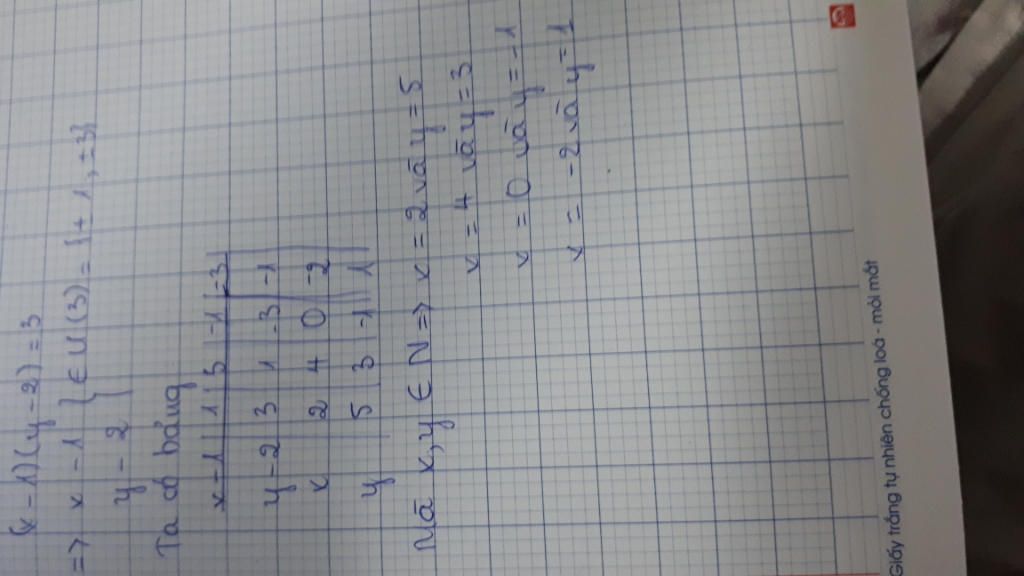 (x - 1)(y - 2) = 3
=> x - 1 } ∈ Ư(3) = {± 1, ± 3}
y - 2
Ta có bảng
x - 1 | 1 | 3 | -1 | -3
y - 2 | 3 | 1 | -3 | -1
x | 2 | 4 | 0 | -2
y | 5 | 3 | -1 | 1
Mà x, y ∈ N => x = 2 và y = 5
x = 4 và y = 3
x = 0 và y = -1
x = -2 và y = 1
Giấy trắng tự nhiên chống loá - mỏi mắt